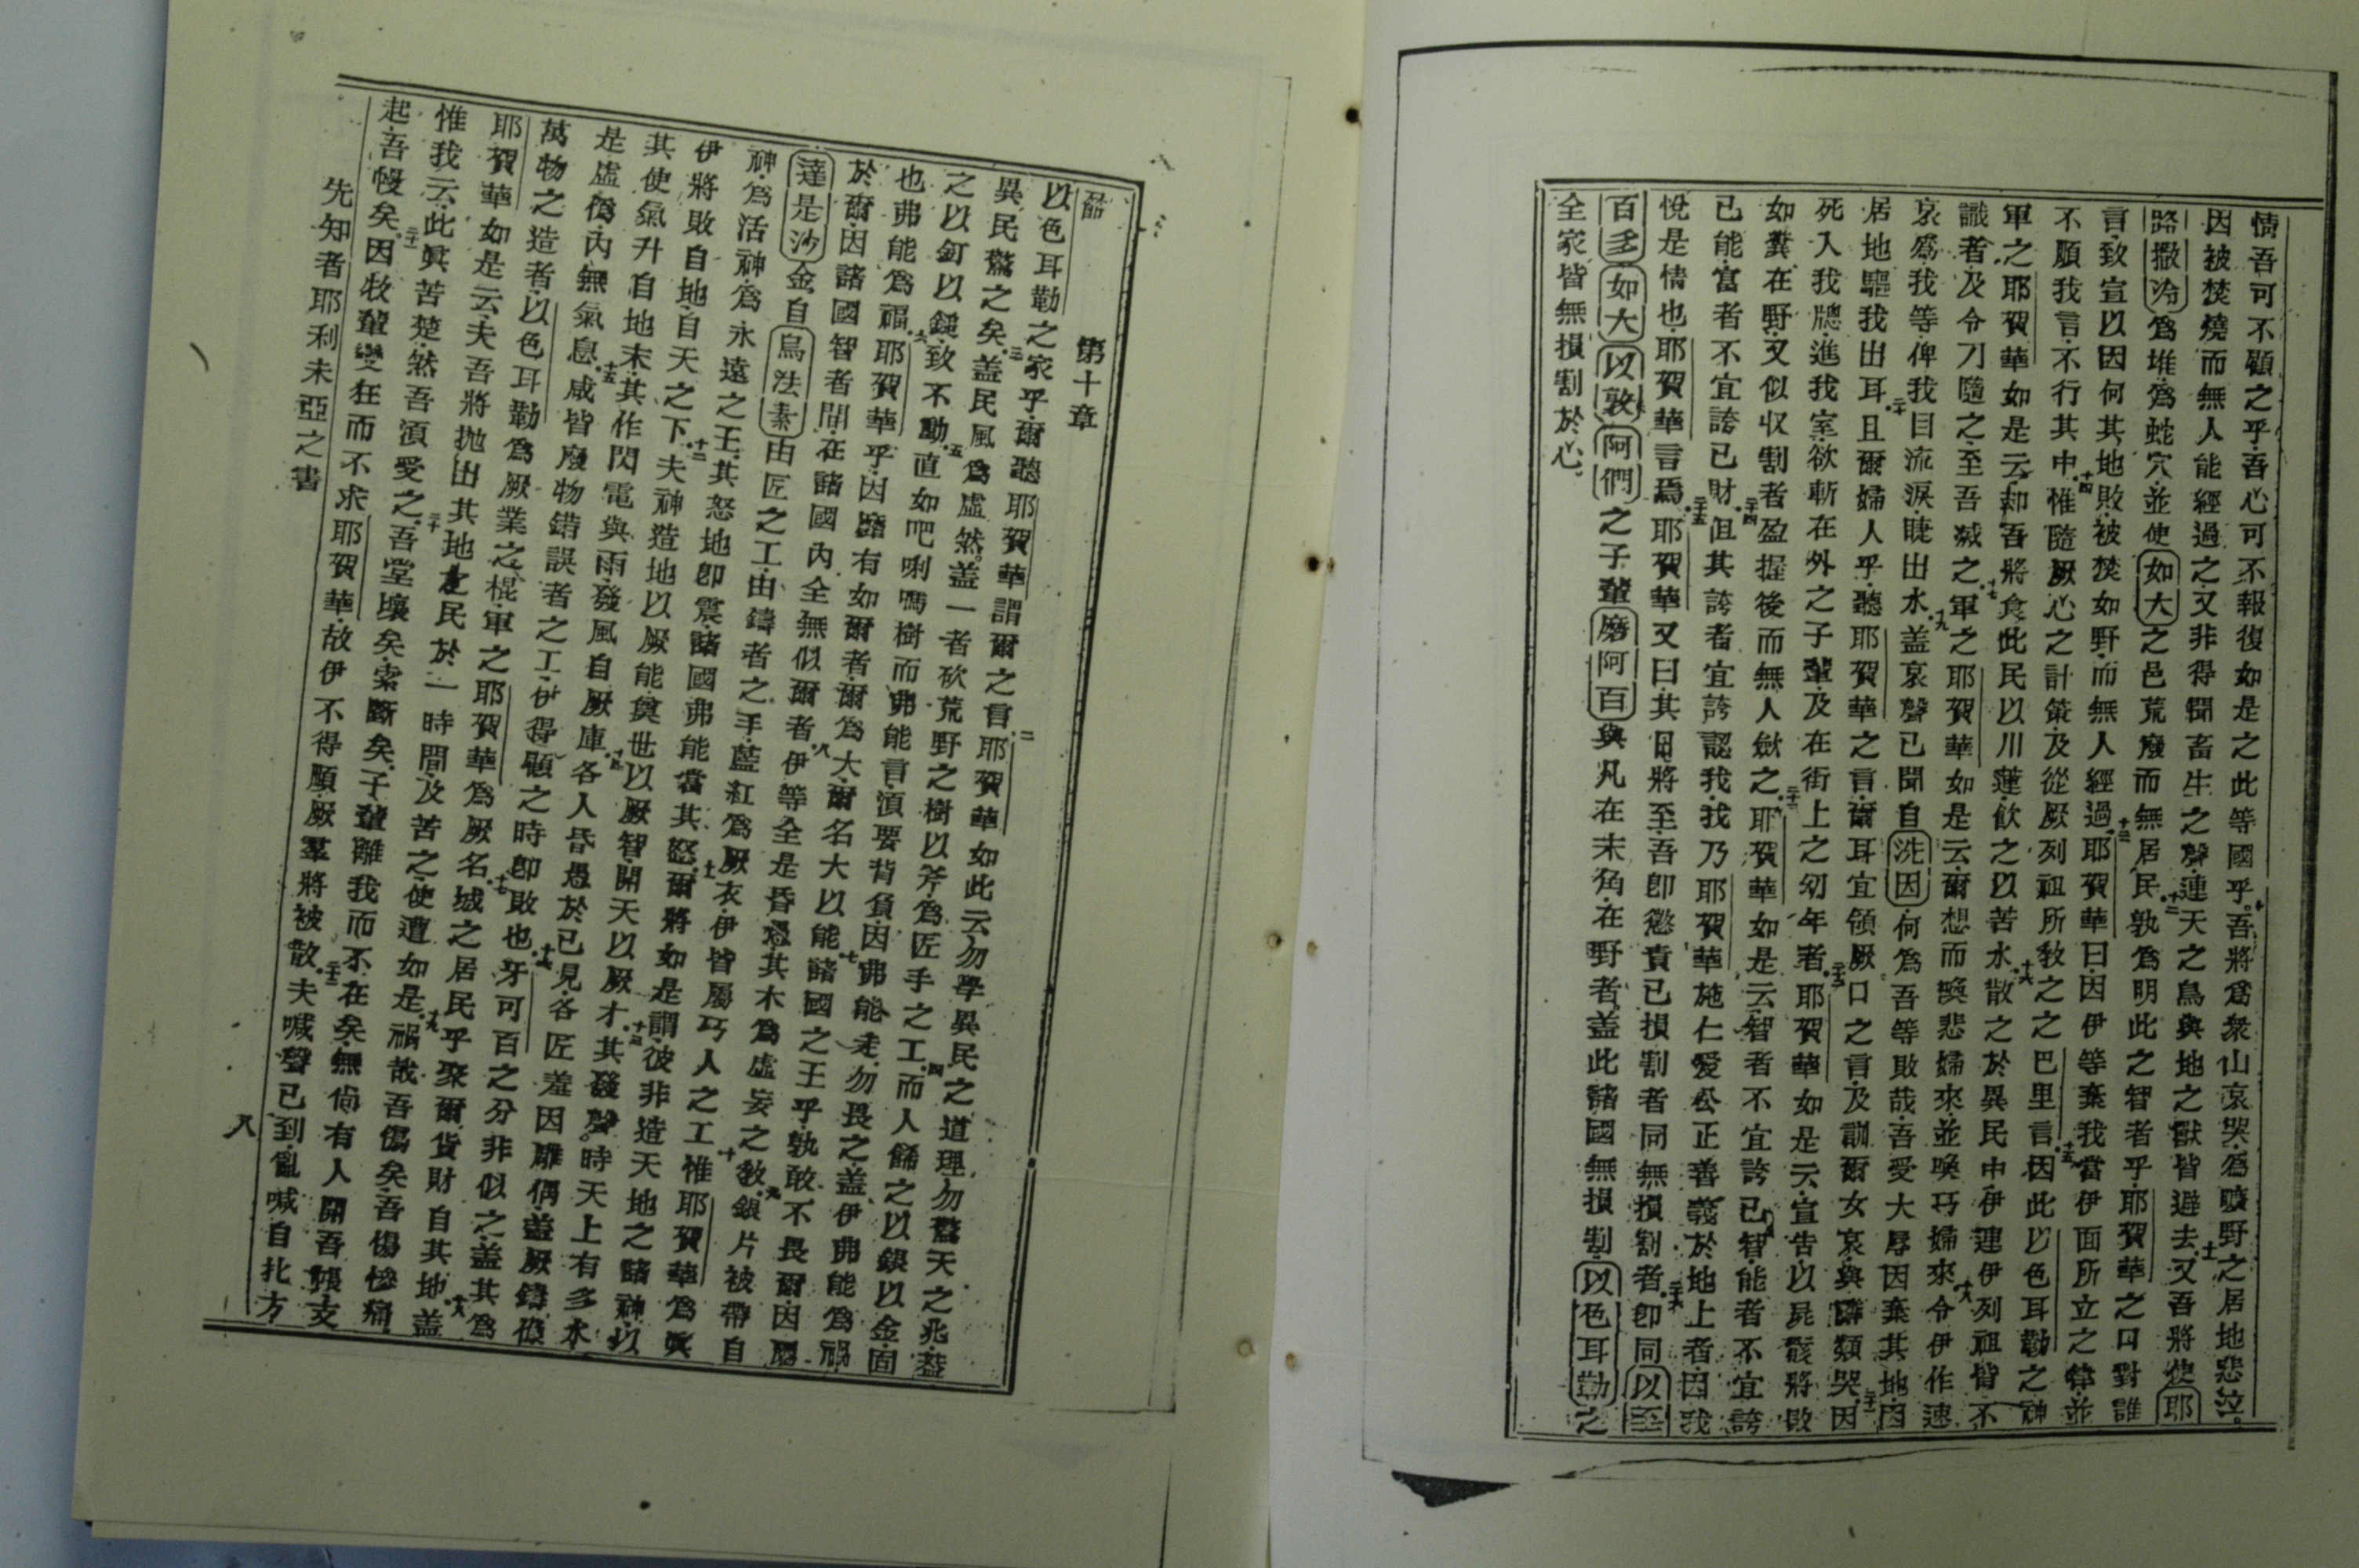 情吾可不顧之乎吾心可不報復如是之此等國乎吾將爲衆山哀哭爲曠野之居地悲泣
因被焚燒而無人能經過之又非得聞畜生之聲連天之鳥與地之獸皆遊去十一又吾將使耶
路撒冷爲堆爲蛇穴並使如大之邑荒廢而無居民十二孰爲明此之智者乎耶賀華之口對誰
言致宣以因何其地敗被焚如野而無人經過十三耶賀華曰因伊等棄我當伊面所立之律並
不順我言不行其中十四惟隨厥心之計策及從厥列祖所敎之之巴里言十五因此以色耳勒之神
軍之耶賀華如是云却吾將食此民以川蓮飲之以苦水十六散之於異民中伊連伊列祖皆不
識者及令刀隨之至吾滅之十七軍之耶賀華如是云爾想而喚悲婦來並喚巧婦來十八令伊作速
哀爲我等俾我目流淚睫出水十九盖哀聲已聞自洗因何爲吾等敗哉吾受大辱因棄其地因
居地驅我出耳二十且爾婦人乎聽耶賀華之言爾耳宜領厥口之言及訓爾女哀與鄰類哭二十一因
死入我牕進我室欲斬在外之子輩及在街上之幼年者二十二耶賀華如是云宣告以屍骸將敗
如糞在野又似收割者盈握後而無人斂之二十三耶賀華如是云智者不宜誇已智能者不宜誇
已能富者不宜誇已財二十四但其誇者宜誇認我我乃耶賀華施仁愛公正善義於地上者因我
悅是情也耶賀華言焉二十五耶賀華又曰其日將至吾卽懲責已損割者同無損割者二十六卽同以至
百多如大以敦阿們之子輩磨阿百與凡在末角在野者盖此諸國無損割以色耳勒之
全家皆無損割於心
第十章
以色耳勒之家乎爾聽耶賀華謂爾之言二耶賀華如此云勿學異民之道理勿驚天之兆蓋
異民驚之矣三盖民風爲虛然盖一者砍荒野之樹以斧爲匠手之工四而人餙之以銀以金固
之以釘以鎚致不動五直如吧唎嗎樹而弗能言須要背負因弗能走勿畏之盖伊弗能爲禍
也弗能爲福六耶賀華乎因靡有如爾者爾爲大爾名大以能七諸國之王乎孰敢不畏爾因屬
於爾因諸國智者間在諸國內全無似爾者八伊等全是昏愚其木爲虛妄之敎九銀片被帶自
達是沙金自烏法素由匠之工由鑄者之手藍紅爲厥衣伊皆屬巧人之工十惟耶賀華爲眞
神爲活神爲永遠之王其怒地卽震諸國弗能當其怒十一爾將如是謂彼非造天地之諸神以
伊將敗自地自天之下十二夫神造地以厥能奠世以厥智開天以厥才十三其發聲時天上有多水
其使氣升自地末其作閃電與雨發風自厥庫十四各人昏愚於已見各匠羞因雕偶盖厥鑄像
是虛僞內無氣息十五咸皆廢物錯誤者之工伊得顧之時卽敗也十六牙可百之分非似之盖其爲
萬物之造者以色耳勒爲厥業之棍軍之耶賀華爲厥名十七城之居民乎聚爾貨財自其地十八盖
耶賀華如是云夫吾將抛出其地之民於一時間及苦之使遭如是十九禍哉吾傷矣吾傷慘痛
惟我云此眞苦楚然吾須受之二十吾堂壞矣索斷矣子輩離我而不在矣無尙有人開吾帳支
起吾幔矣二十一因牧輩變狂而不求耶賀華故伊不得順厥羣將被散二十二夫喊聲已到亂喊自北方
先知者耶利未亞之書
八